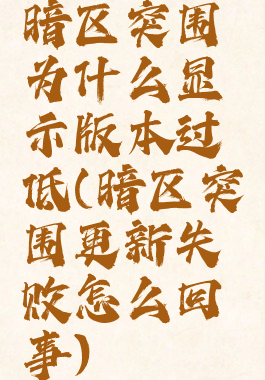 暗区突围
为什么显
示版本过
低(暗区突
围更新失
败怎么回
事)